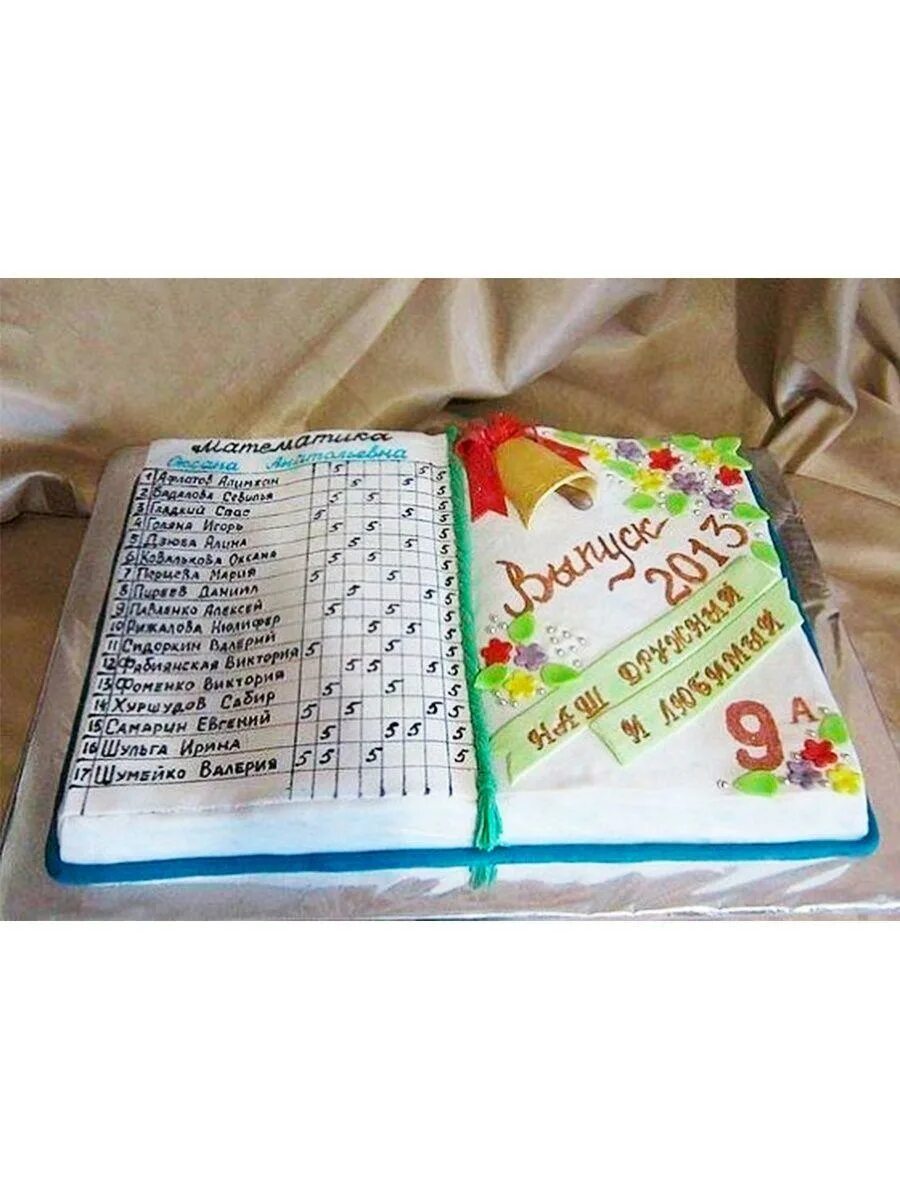 Математика
Оксана Анатольевна
1 Афлатов Алимхан 5 5 5
2 Бадалова Севилья 5 5 5
3 Гладкий Спас 5 5 5
4 Голяна Игорь 5 5 5
5 Дзюва Алина 5 5 5
6 Ковалькова Оксана 5 5 5
7 Перцева Мария 5 5 5
8 Пиреев Даниил 5 5 5
9 Павленко Алексей 5 5 5
10 Рыжалова Нюлифер 5 5 5
11 Сидоркин Валерий 5 5 5
12 Фабиянская Виктория 5 5 5
13 Фоменко Виктория 5 5 5
14 Хуршудов Сабир 5 5 5 5
15 Самарин Евгений 5 5 5 5
16 Шульга Ирина 5 5 5 5
17 Шумейко Валерия 5 5 5 5
Выпуск
2013
НАШ ДРУЖНЫЙ
И ЛЮБИМЫЙ
9 А